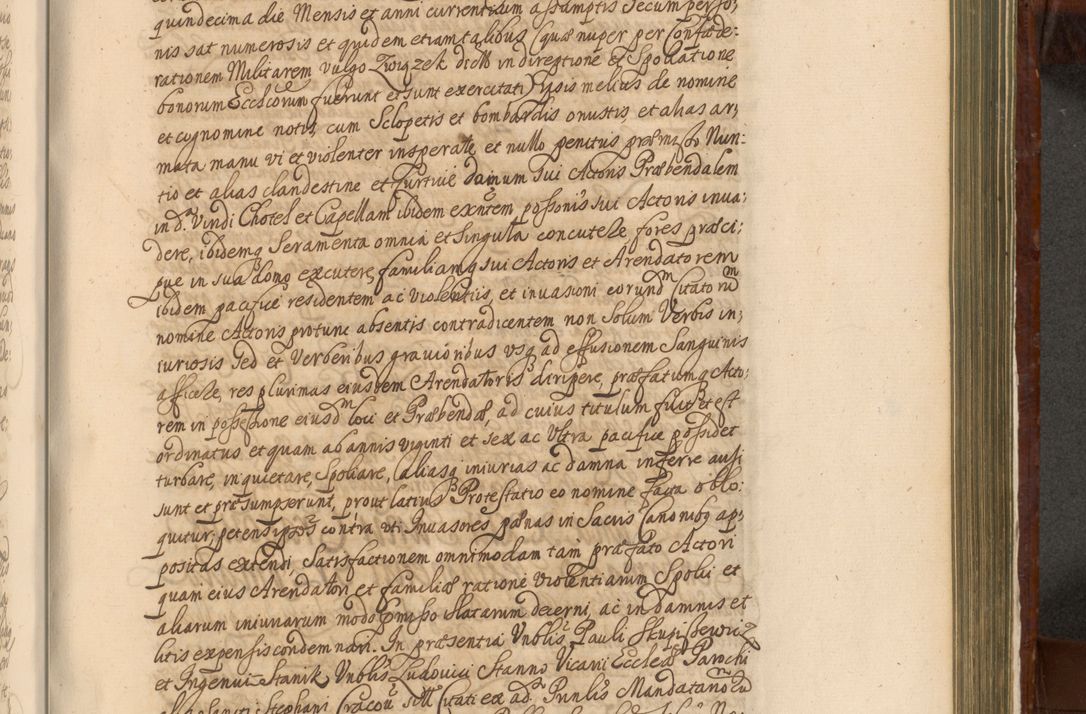 quindecima die Mensis et anni currentium assumptis secum perso,
nis sat numerosis et quidem etiam talibus (quæ nuper per Confæde:
rationem Militarem vulgo Związek dicto in direptione et Spoliatione
bonorum Ecclĉorum fuerunt et sunt exercitati) ipsis melius de nomine
et cognomine notis, cum Sclopetis et bombardis onustis, et alias ar,
mata manu vi et violenter insperate et nullo penitus præmisso Nun:
tio et alias clandestine et furtive domum sui Actoris Præbendalem
in Vindi Chotel et Capellam ibidem exntem possonis sui Actoris inva,
dere, ibidemq Seramenta omnia et singula concutere fores præci;
pue in sua domo excutere, familiamq sui Actoris et Arendatorem
ibidem pacifice residentem ac violentiis, et invasioni eorundm Citatorum
nomine Actoris protunc absentis contradicentem non solum Verbis in,
iuriosis sed et Verberibus gravioribus vsq ad effusionem Sanguinis
afficere, res plurimas eiusdem Arendatoris diripere, præfatumq Acto,
rem in possessione eiusdm loci et Præbendæ, ad cuius titulum fuit et est
ordinatus et quam ab annis viginti et sex ac Vltra pacifice possidet
turbare, inquietare, Spoliare, aliasq iniurias ac damna inferre ausi
sunt et præsumpserunt, prout latius Protestatio eo nomine facta oblo:
quitur, petens ipsos contra vti Invasores pœnas in Sacris Canonibq ap:
positas extendi, Satisfactionem omnimodam tam præfato Actori
quam eius Arendatori et familiæ ratione Violentiarum Spolii et
aliarum iniuriarum modo pmisso illatarum decerni, ac in damnis et
litis expensis condemnari. In præsentia Vnblis Pauli Skupissewicz
et Ingenui Stanik Vnblis Ludovici Stanno Vicarii Ecclesiæ Parochi
Sancti Stephani Cracov Citati ex ad Prnlis Mandatario